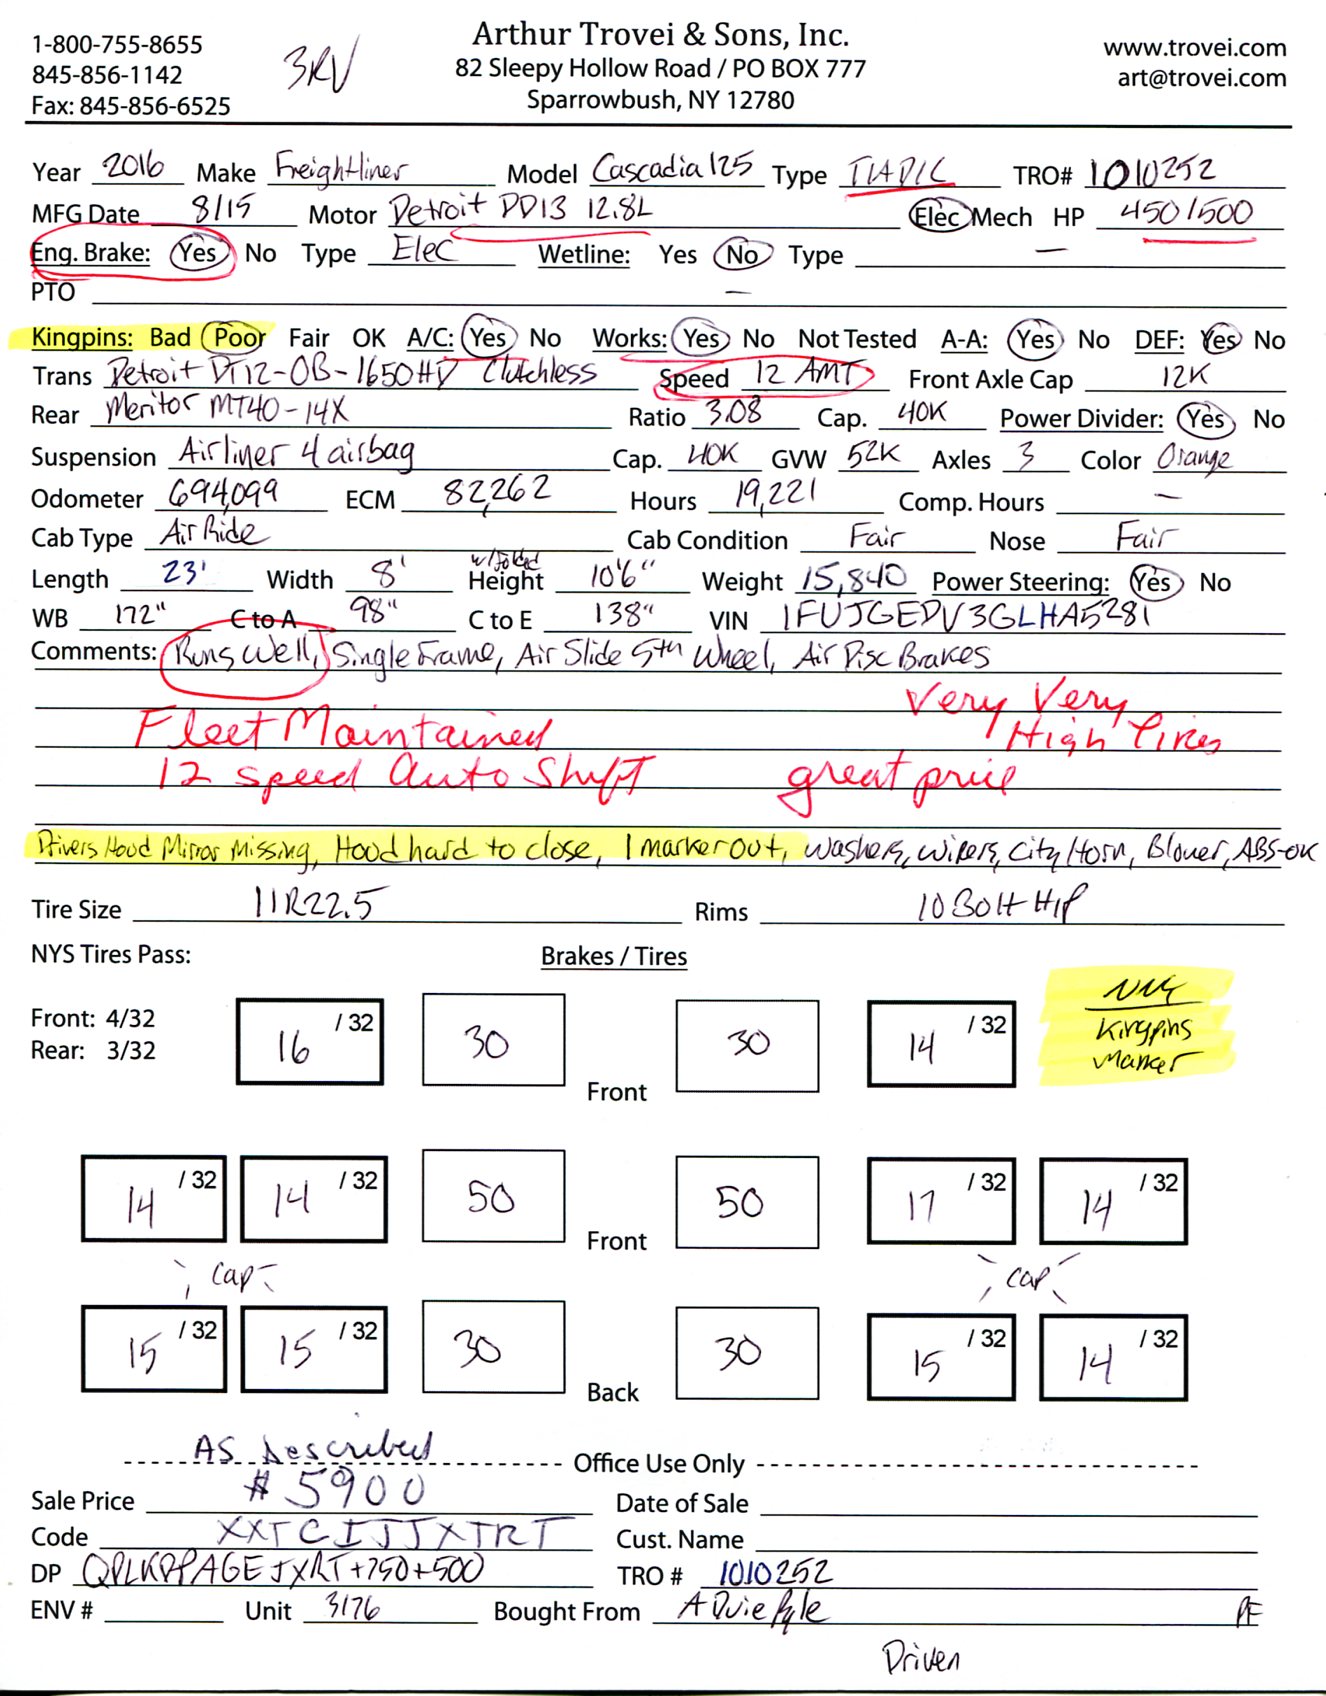 1-800-755-8655
845-856-1142
Fax: 845-856-6525
3RV
Arthur Trovei & Sons, Inc.
82 Sleepy Hollow Road / PO BOX 777
Sparrowbush, NY 12780
www.trovei.com
art@trovei.com
Year 2016 Make Freightliner Model Cascadia 125 Type T/A D/C TRO# 1010252
MFG Date 8/15 Motor Detroit DD13 12.8L Elec Mech HP 450/500
Eng. Brake: Yes No Type Elec Wetline: Yes No Type —
PTO —
Kingpins: Bad Poor Fair OK A/C: Yes No Works: Yes No Not Tested A-A: Yes No DEF: Yes No
Trans Detroit DT12-OB-1650HD Clutchless Speed 12 AMT Front Axle Cap 12K
Rear Meritor MT40-14X Ratio 3.08 Cap. 40K Power Divider: Yes No
Suspension Airliner 4 airbag Cap. 40K GVW 52K Axles 3 Color Orange
Odometer 694,099 ECM 82,262 Hours 19,221 Comp. Hours —
Cab Type Air Ride Cab Condition Fair Nose Fair
Length 23' Width 8' w/folded Height 10'6" Weight 15,840 Power Steering: Yes No
WB 172" C to A 98" C to E 138" VIN 1FUJGEDV3GLHA5281
Comments: Runs Well, Single Frame, Air Slide 5th Wheel, Air Disc Brakes
Very Very
Fleet Maintained High Tires
12 speed Auto Shift great price
Drivers Hood Mirror Missing, Hood hard to close, 1 marker out, Washers, Wipers, City Horn, Blower, ABS-OK
Tire Size 11R22.5 Rims 10 Bolt HP
NYS Tires Pass: Brakes / Tires
Front: 4/32
Rear: 3/32
16 /32 30 Front 30 14 /32
Kingpins
Marker
14 /32 14 /32 50 Front 50 17 /32 14 /32
Cap Cap
15 /32 15 /32 30 Back 30 15 /32 14 /32
As Described
Office Use Only
Sale Price # 5900 Date of Sale
Code XXTCIJJXTRT Cust. Name
DP TRO # 1010252
ENV # Unit 3176 Bought From A Duie Pyle PE
Driven